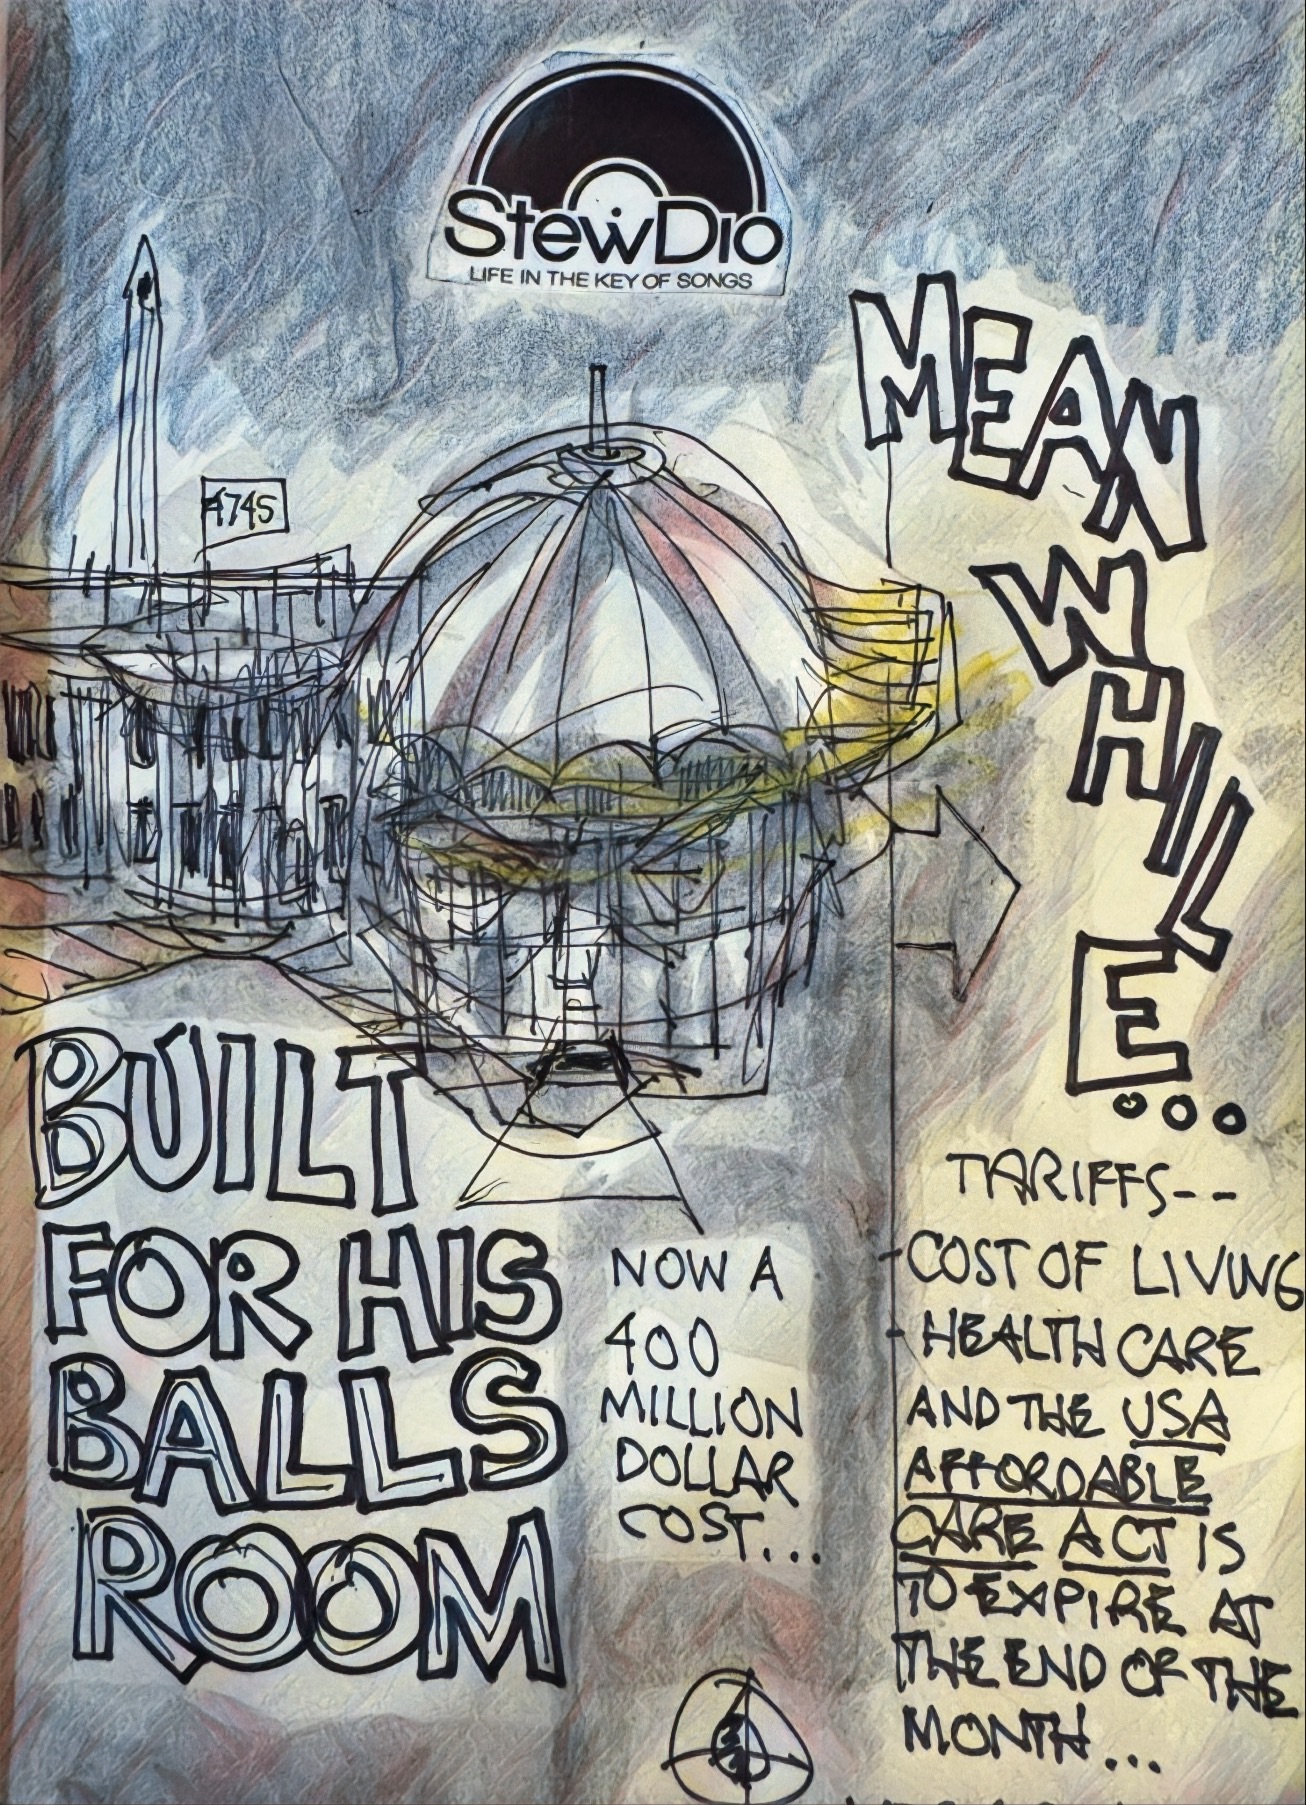 StewDio
LIFE IN THE KEY OF SONGS
MEAN
WHILE...
4745
BUILT
FOR HIS
BALLS
ROOM
NOW A
400
MILLION
DOLLAR
COST...
TARIFFS--
COST OF LIVING
HEALTH CARE
AND THE USA
AFFORDABLE
CARE ACT IS
TO EXPIRE AT
THE END OF THE
MONTH...